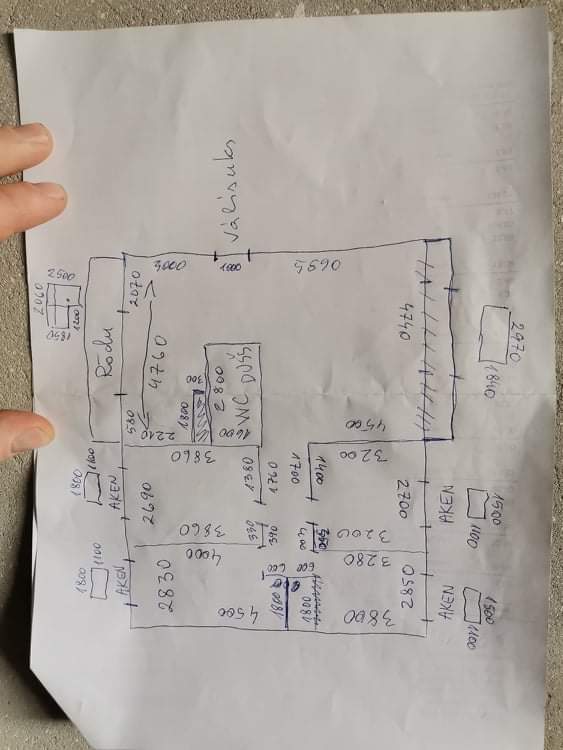 Välisuks
2500
2060
1850
1200
2070
3000
1000
5690
Rõdu
4760
580
2210
300
1800
2800
WC DUŠŠ
1600
4740
2970
1840
4500
3860
1380
1760
1700
1400
3200
1800
1100
AKEN
2690
2700
AKEN
1500
1100
3860
330
390
400
3200
4000
3280
1800
1100
AKEN
2830
600
600
2850
AKEN
1500
1100
4500
1800
1800
3800